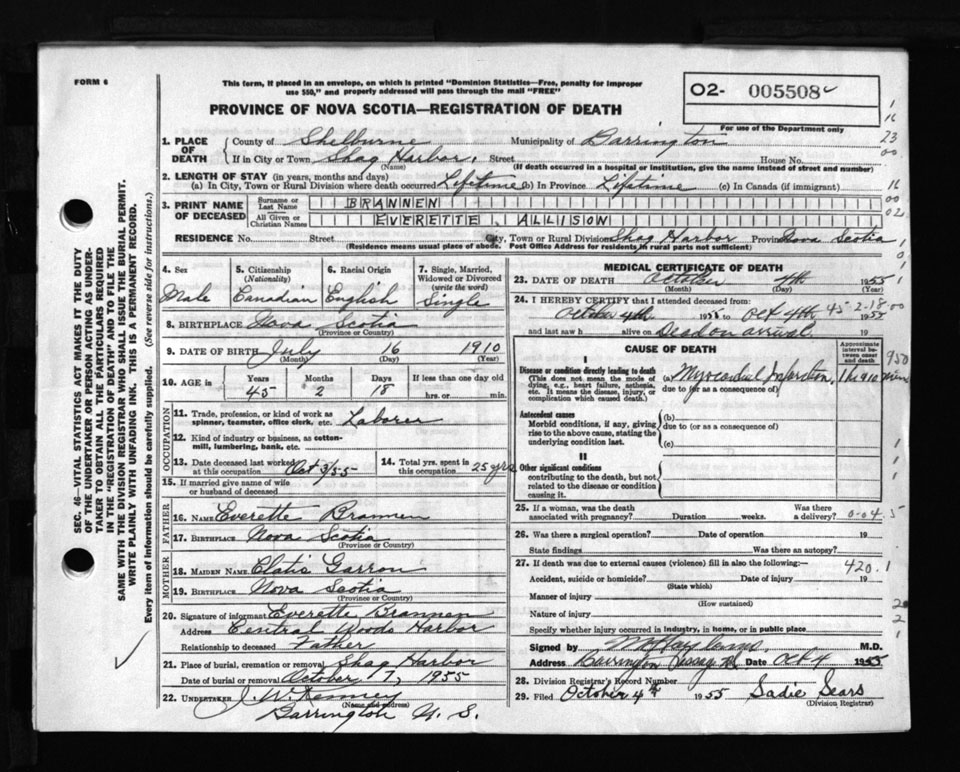 FORM 6
This form, if placed in an envelope, on which is printed "Dominion Statistics—Free, penalty for improper
use $50," and properly addressed will pass through the mail "FREE"
PROVINCE OF NOVA SCOTIA—REGISTRATION OF DEATH
O2- 005508
For use of the Department only
SEC. 46—VITAL STATISTICS ACT MAKES IT THE DUTY
OF THE UNDERTAKER OR PERSON ACTING AS UNDER-
TAKER TO OBTAIN ALL THE PARTICULARS REQUIRED
IN THE "REGISTRATION OF DEATH" AND TO FILE THE
SAME WITH THE DIVISION REGISTRAR WHO SHALL ISSUE THE BURIAL PERMIT.
WRITE PLAINLY WITH UNFADING INK. THIS IS A PERMANENT RECORD.
Every item of information should be carefully supplied. (See reverse side for instructions.)
1. PLACE OF DEATH
County of Shelburne Municipality of Barrington
If in City or Town Shag Harbor. Street House No.
(Name) (If death occurred in a hospital or institution, give the name instead of street and number)
2. LENGTH OF STAY (in years, months and days)
(a) In City, Town or Rural Division where death occurred Lifetime (b) In Province Lifetime (c) In Canada (if immigrant)
3. PRINT NAME OF DECEASED
Surname or Last Name BRANNEN
All Given or Christian Names EVERETTE ALLISON
RESIDENCE No. Street City, Town or Rural Division Shag Harbor Province Nova Scotia
(Residence means usual place of abode. Post Office Address for residents in rural parts not sufficient)
4. Sex
Male
5. Citizenship (Nationality)
Canadian
6. Racial Origin
English
7. Single, Married, Widowed or Divorced (write the word)
Single
8. BIRTHPLACE Nova Scotia
(Province or Country)
9. DATE OF BIRTH July 16 1910
(Month) (Day) (Year)
10. AGE in Years Months Days If less than one day old
45 2 18 hrs. or min.
OCCUPATION
11. Trade, profession, or kind of work as
spinner, teamster, office clerk, etc. Laborer
12. Kind of industry or business, as cotton-
mill, lumbering, bank, etc.
13. Date deceased last worked at this occupation Oct 3/55
14. Total yrs. spent in this occupation 25 yrs
15. If married give name of wife
or husband of deceased
FATHER
16. NAME Everette Brannen
17. BIRTHPLACE Nova Scotia
(Province or Country)
MOTHER
18. MAIDEN NAME Garron
19. BIRTHPLACE Nova Scotia
(Province or Country)
20. Signature of informant Everette Brannen
Address Central Woods Harbor
Relationship to deceased Father
21. Place of burial, cremation or removal Shag Harbor
Date of burial or removal October 7, 1955
22. UNDERTAKER J. W. Kenney
(Name and address)
Barrington N. S.
MEDICAL CERTIFICATE OF DEATH
23. DATE OF DEATH October 4th 1955
(Month) (Day) (Year)
24. I HEREBY CERTIFY that I attended deceased from:
October 4th 1955 to Oct 4th 1955
45-2-18
and last saw h alive on Dead on arrival 19
CAUSE OF DEATH
Approximate interval between onset and death
I
Disease or condition directly leading to death
(This does not mean the mode of dying, e.g., heart failure, asthenia, etc. It means the disease, injury, or complication which caused death.)
(a) Myocardial Infarction
due to (or as a consequence of)
Antecedent causes
Morbid conditions, if any, giving rise to the above cause, stating the underlying condition last.
(b)
due to (or as a consequence of)
(c)
II
Other significant conditions
contributing to the death, but not related to the disease or condition causing it.
25. If a woman, was the death associated with pregnancy? Duration weeks. Was there a delivery?
0-04
26. Was there a surgical operation? Date of operation 19
State findings Was there an autopsy?
27. If death was due to external causes (violence) fill in also the following:
420.1
Accident, suicide or homicide? Date of injury 19
(State which)
Manner of injury
(How sustained)
Nature of injury
Specify whether injury occurred in industry, in home, or in public place
Signed by M.D.
Address Barrington Passage Date Oct 4 1955
28. Division Registrar's Record Number
29. Filed October 4th 1955 Sadie Sears
(Division Registrar)